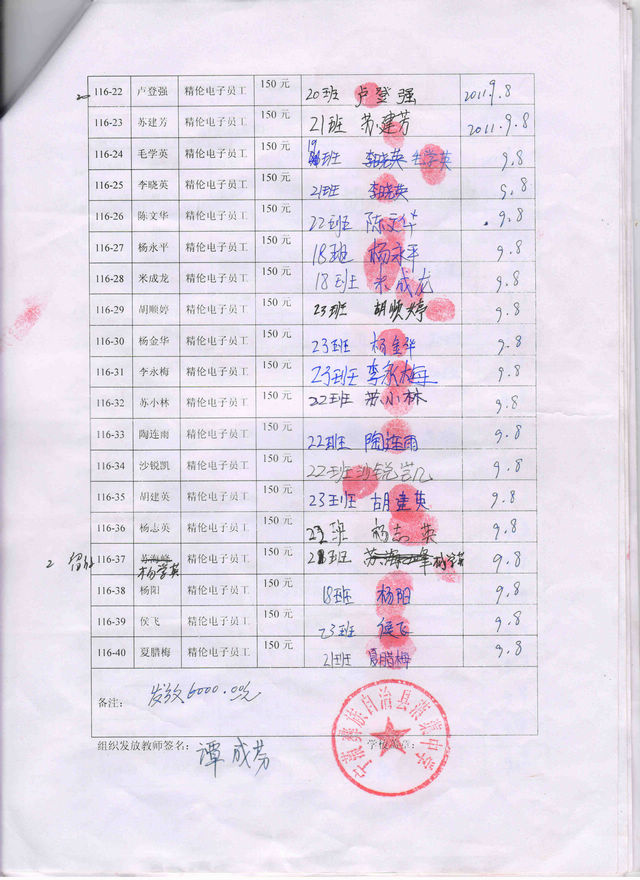 20 116-22 卢登强 精伦电子员工 150 元 20班 卢登强 2011.9.8
116-23 苏建芳 精伦电子员工 150 元 21班 苏建芳 2011.9.8
116-24 毛学英 精伦电子员工 150 元 19班 李晓英 毛学英 9.8
116-25 李晓英 精伦电子员工 150 元 21班 李晓英 9.8
116-26 陈文华 精伦电子员工 150 元 22班 陈文华 9.8
116-27 杨永平 精伦电子员工 150 元 18班 杨永平 9.8
116-28 米成龙 精伦电子员工 150 元 18班 米成龙 9.8
116-29 胡顺婷 精伦电子员工 150 元 23班 胡顺婷 9.8
116-30 杨金华 精伦电子员工 150 元 23班 杨金华 9.8
116-31 李永梅 精伦电子员工 150 元 23班 李永梅 9.8
116-32 苏小林 精伦电子员工 150 元 22班 苏小林 9.8
116-33 陶连雨 精伦电子员工 150 元 22班 陶连雨 9.8
116-34 沙锐凯 精伦电子员工 150 元 22班 沙锐凯 9.8
116-35 胡建英 精伦电子员工 150 元 23班 胡建英 9.8
116-36 杨志英 精伦电子员工 150 元 22班 杨志英 9.8
2 116-37 苏海峰 精伦电子员工 150 元 21班 苏海峰 杨学英 9.8
杨学英
116-38 杨阳 精伦电子员工 150 元 18班 杨阳 9.8
116-39 侯飞 精伦电子员工 150 元 23班 侯飞 9.8
116-40 夏腊梅 精伦电子员工 150 元 21班 夏腊梅 9.8
备注： 发放6000.00元
组织发放教师签名： 谭成芬 学校盖章：
宁蒗彝族自治县
中学